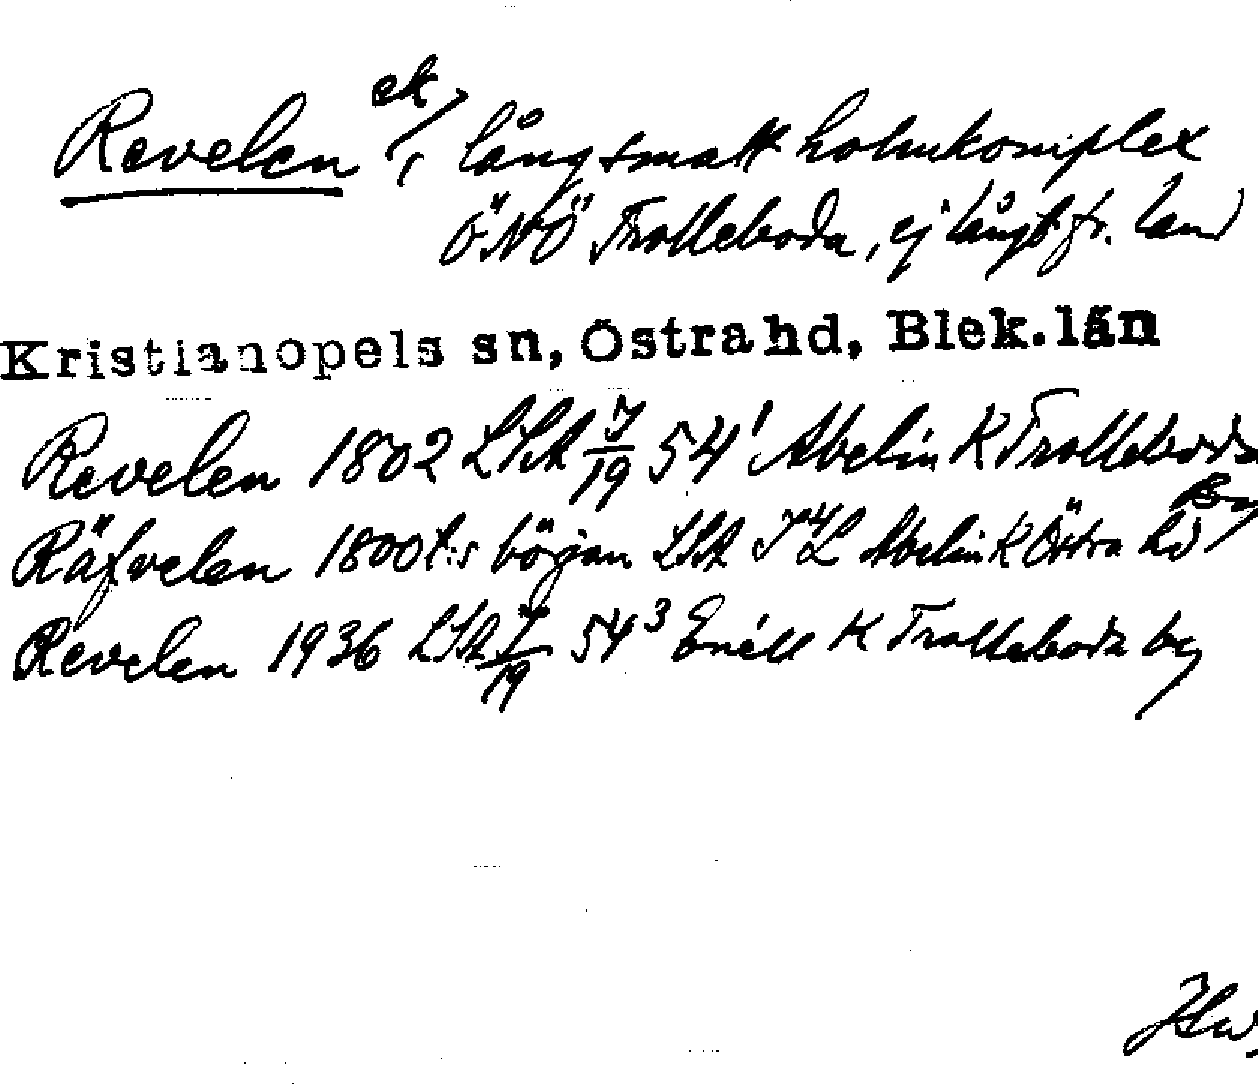 ek
Revelen, långsmalt holmkomplex
ÖNÖ Trolleboda, ej långt fr. land
Kristianopels sn, Östra hd, Blek. län
Revelen 1802 LSA I/19 54¹ Abelin K Trolleboda
By
Räfvelen 1800t:s början LSA Abelin K Östra hd
Revelen 1936 LSA I/19 54³ Enéll K Trolleboda by